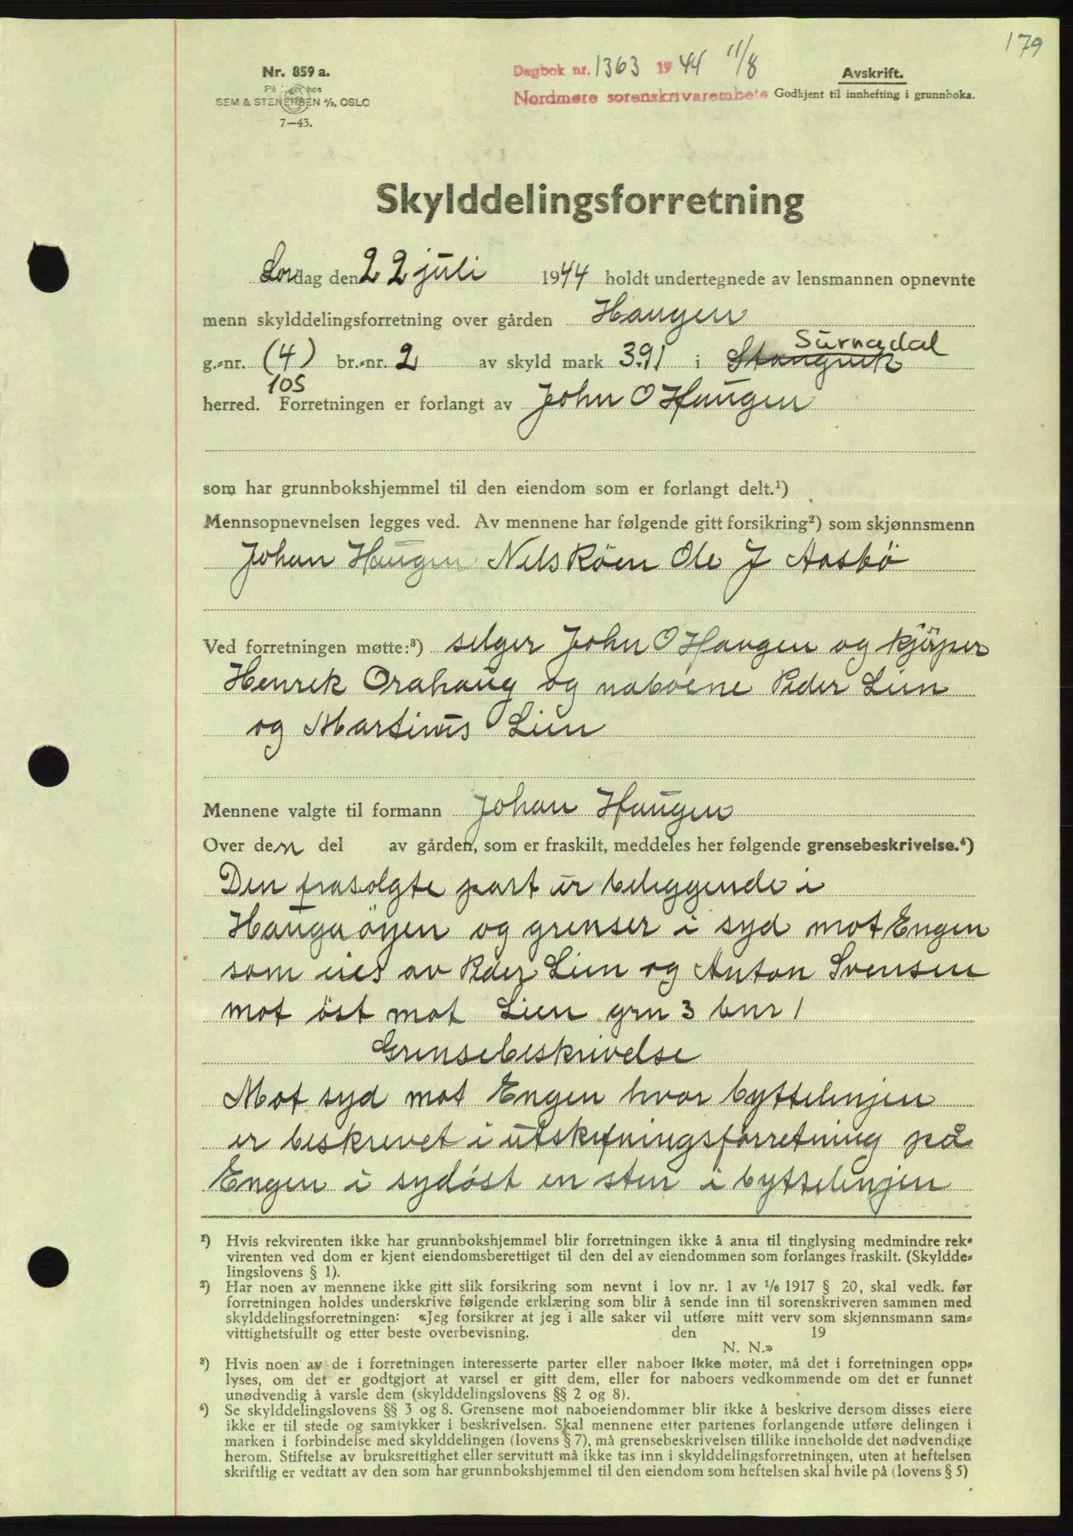 179
Nr. 859 a.
SEM & STENERSEN A/S, OSLO
7—43.
Dagbok nr. 1363 1944 11/8
Nordmøre sorenskrivarembete
Avskrift.
Godkjent til innhefting i grunnboka.
Skylddelingsforretning
Lørdag den 22 juli 1944 holdt undertegnede av lensmannen opnevnte
menn skylddelingsforretning over gården Haugen
Surnadal
g.-nr. (4) br.-nr. 2 av skyld mark 3.91 i Stangvik
105
herred. Forretningen er forlangt av John O Haugen
som har grunnbokshjemmel til den eiendom som er forlangt delt.¹)
Mennsopnevnelsen legges ved. Av mennene har følgende gitt forsikring²) som skjønnsmenn
Johan Haugen Nils Röen Ole J Aasbö
Ved forretningen møtte:³) selger John O Haugen og kjöper
Henrik Orahaug og naboene Peder Lien
og Martinus Lien
Mennene valgte til formann Johan Haugen
Over den del av gården, som er fraskilt, meddeles her følgende grensebeskrivelse.⁴)
Den frasolgte part er beliggende i
Haugaöyen og grenser i syd mot Engen
som eies av Peder Lien og Anton Svensen
mot öst mot Lien grn 3 bnr 1
Grensebeskrivelse
Mot syd mot Engen hvor byttelinjen
er beskrevet i utskiftningsforretning på
Engen i sydöst en sten i byttelinjen
¹) Hvis rekvirenten ikke har grunnbokshjemmel blir forretningen ikke å anta til tinglysing medmindre rek-
virenten ved dom er kjent eiendomsberettiget til den del av eiendommen som forlanges fraskilt. (Skyldde-
lingslovens § 1).
²) Har noen av mennene ikke gitt slik forsikring som nevnt i lov nr. 1 av ¹/₈ 1917 § 20, skal vedk. før
forretningen holdes underskrive følgende erklæring som blir å sende inn til sorenskriveren sammen med
skylddelingsforretningen: «Jeg forsikrer at jeg i alle saker vil utføre mitt verv som skjønnsmann sam-
vittighetsfullt og etter beste overbevisning. den 19
N. N.»
³) Hvis noen av de i forretningen interesserte parter eller naboer ikke møter, må det i forretningen opp-
lyses, om det er godtgjort at varsel er gitt dem, eller for naboers vedkommende om det er funnet
unødvendig å varsle dem (skylddelingslovens §§ 2 og 8).
⁴) Se skylddelingslovens §§ 3 og 8. Grensene mot naboeiendommer blir ikke å beskrive dersom disses eiere
ikke er til stede og samtykker i beskrivelsen. Skal mennene etter partenes forlangende utføre delingen i
marken i forbindelse med skylddelingen (lovens § 7), må grensebeskrivelsen tillike inneholde det nødvendige
herom. Stiftelse av bruksrettighet eller servitutt må ikke tas inn i skylddelingsforretningen, uten at heftelsen
skriftlig er vedtatt av den som har grunnbokshjemmel til den eiendom som heftelsen skal hvile på (lovens § 5)